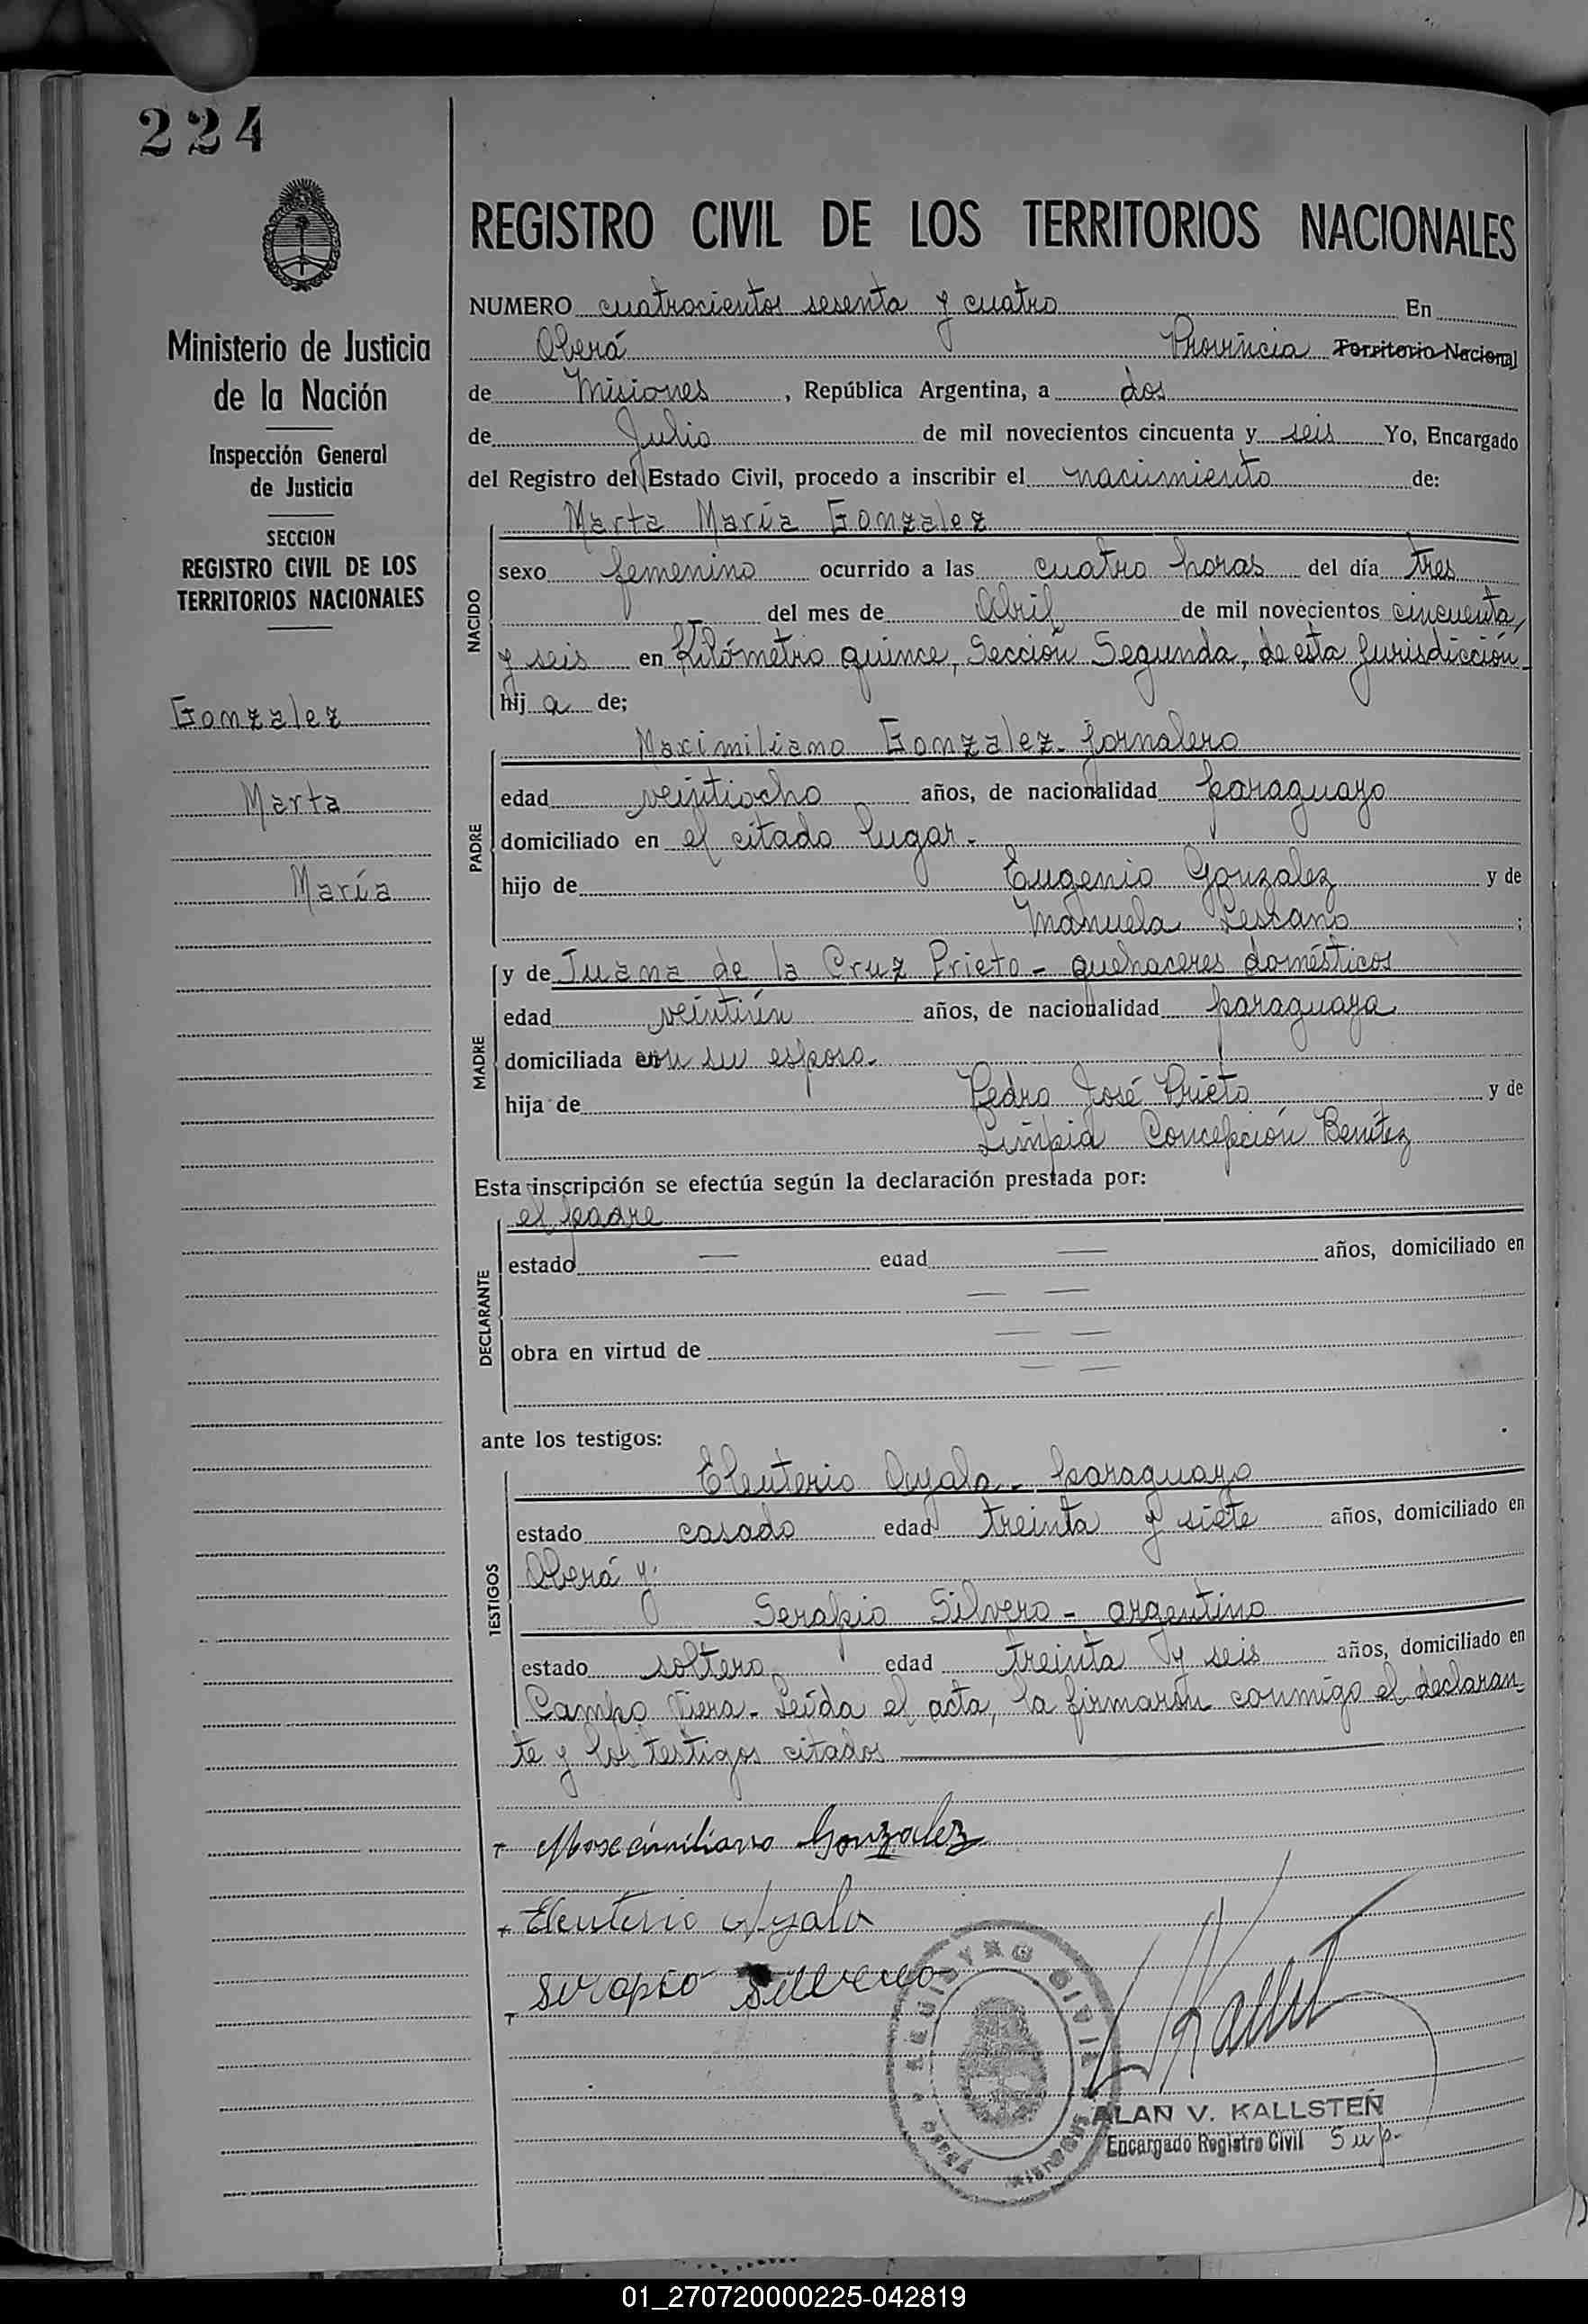 224
Ministerio de Justicia
de la Nación
Inspección General
de Justicia
SECCION
REGISTRO CIVIL DE LOS
TERRITORIOS NACIONALES
Gonzalez
Marta
María
REGISTRO CIVIL DE LOS TERRITORIOS NACIONALES
NUMERO cuatrocientos sesenta y cuatro En
Oberá Provincia Territorio Nacional
de Misiones, República Argentina, a dos
de Julio de mil novecientos cincuenta y seis Yo, Encargado
del Registro del Estado Civil, procedo a inscribir el nacimiento de:
Marta María Gonzalez
NACIDO
sexo femenino ocurrido a las cuatro horas del día tres
del mes de Abril de mil novecientos cincuenta
y seis en Kilómetro quince, Sección Segunda, de esta Jurisdicción
hij a de;
Maximiliano Gonzalez - jornalero
PADRE
edad veintiocho años, de nacionalidad paraguayo
domiciliado en el citado lugar.
hijo de Eugenio Gonzalez y de
Manuela Lescano ;
MADRE
y de Juana de la Cruz Prieto - quehaceres domésticos
edad veintiún años, de nacionalidad paraguaya
domiciliada con su esposo.
hija de Pedro José Prieto y de
Limpia Concepción Benítez
Esta inscripción se efectúa según la declaración prestada por:
el padre
DECLARANTE
estado — edad — años, domiciliado en
— —
obra en virtud de — —
— —
ante los testigos:
TESTIGOS
Eleuterio Ayala - paraguayo
estado casado edad treinta y siete años, domiciliado en
Oberá y:
Serapio Silvero - argentino
estado soltero edad treinta y seis años, domiciliado en
Campo Viera - Leída el acta, la firmarón conmigo el declaran-
te y los testigos citados
Maxcimiliano Gonzalez
Eleuterio Ayala
Serapio Silvero
REGISTRO CIVIL
OBERÁ MISIONES
Kallst
ALAN V. KALLSTEN
Encargado Registro Civil Sup.
01_270720000225-042819